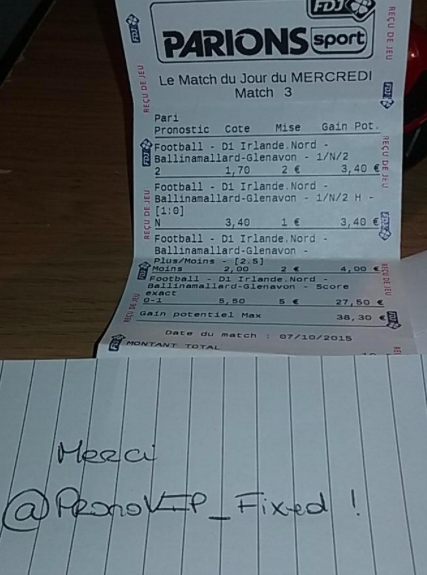 FDJ
PARIONS sport
Le Match du Jour du MERCREDI
Match 3
Pari
Pronostic Cote Mise Gain Pot.
Football - D1 Irlande.Nord -
Ballinamallard-Glenavon - 1/N/2
2 1,70 2 € 3,40 €
Football - D1 Irlande.Nord -
Ballinamallard-Glenavon - 1/N/2 H -
[1:0]
N 3,40 1 € 3,40 €
Football - D1 Irlande.Nord -
Ballinamallard-Glenavon -
Plus/Moins - [2.5]
Moins 2,00 2 € 4,00 €
Football - D1 Irlande.Nord -
Ballinamallard-Glenavon - Score
exact
0-1 5,50 5 € 27,50 €
Gain potentiel Max 38,30 €
Date du match : 07/10/2015
MONTANT TOTAL
REÇU DE JEU
REÇU DE JEU
REÇU DE JEU
REÇU DE JEU
REÇU DE JEU
REÇU DE JEU
Merci
@PronoVIP_Fixed !